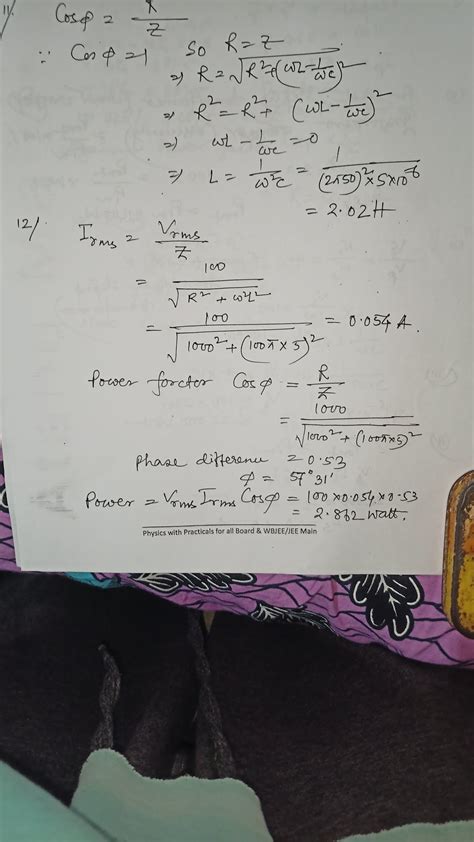 11.
Cosφ = R/Z
∵ Cosφ = 1 So R = Z
⇒ R = √R² + (ωL - 1/ωc)²
⇒ R² = R² + (ωL - 1/ωc)²
⇒ ωL - 1/ωc = 0
⇒ L = 1/ω²c = 1/(2π50)² × 5×10⁻⁶
= 2.02H
12/ Irms = Vrms/Z
= 100/√R² + ω²L²
= 100/√1000² + (100π × 5)² = 0.054 A.
Power forctor Cosφ = R/Z
= 1000/√1000² + (100π×5)²
phase differenu = 0.53
φ = 57° 31'
Power = Vrms Irms Cosφ = 100 × 0.054 × 0.53
= 2.862 watt.
Physics with Practicals for all Board & WBJEE/JEE Main